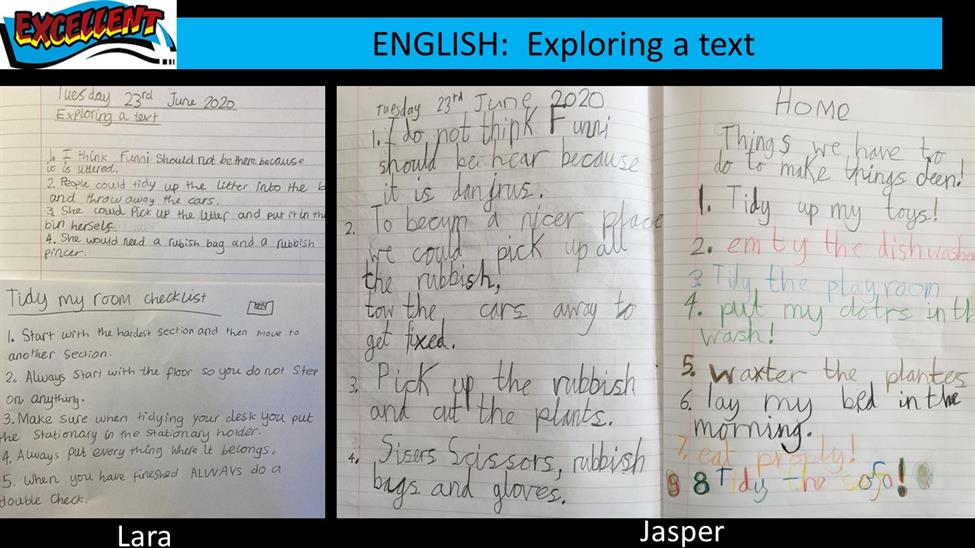 EXCELLENT
ENGLISH: Exploring a text
Tuesday 23rd June 2020
Exploring a text
1. I think Funni Should not be there because
it is littered.
2. People could tidy up the litter into the b
and throw away the cars.
3. She could Pick up the letter and put it in the
bin herself.
4. She would need a rubish bag and a rubbish
pincer.
Tidy my room checklist
1. Start with the hardest section and then move to
another section.
2. Always Start with the floor so you do not Step
on anything.
3. Make sure when tidying your desk you put
the Stationary in the Stationary holder.
4. Always put every thing where it belongs.
5. when you have fineshed ALWAYS do a
double Check.
Lara
Tuesday 23rd June 2020
1. I do not think Funni
should be hear because
it is danjrus.
2. To becum a nicer place
we could pick up all
the rubbish,
tow the cars away to
get fixed.
3. Pick up the rubbish
and cut the plants.
4. Sisers Scissors, rubbish
bags and gloves.
HOME
Things we have to
do to make things cleen!
1. Tidy up my toys!
2. emty the dishwasher
3. Tidy the playroom
4. put my clotrs in th
wash!
5. waxter the plantes
6. lay my bed in the
morning.
7. eat proply!
8 8 Tidy the sofo!
Jasper